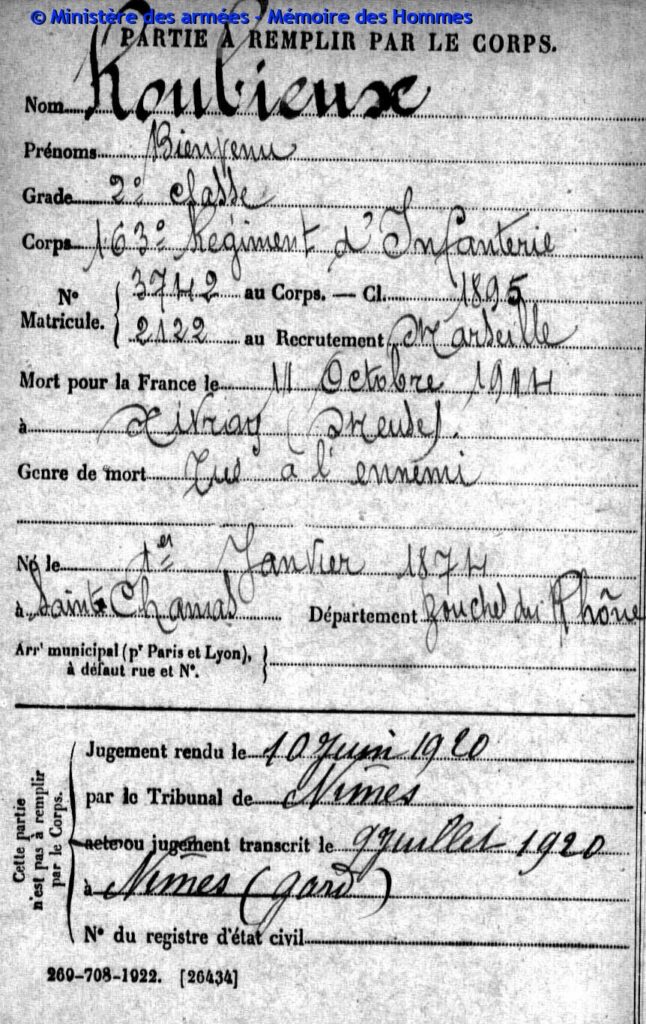 © Ministère des armées - Mémoire des Hommes
PARTIE À REMPLIR PAR LE CORPS.
Nom Roubieux
Prénoms Bienvenu
Grade 2e classe
Corps 163e Régiment d'Infanterie
N° Matricule. { 3742 au Corps. — Cl. 1895
2122 au Recrutement Marseille
Mort pour la France le 11 Octobre 1914
à Xivray (Meuse).
Genre de mort Tué à l'ennemi
Né le 1er Janvier 1874
à Saint Chamas Département Bouches du Rhône
Arrt municipal (pr Paris et Lyon), }
à défaut rue et N°.
Cette partie n'est pas à remplir par le Corps.
Jugement rendu le 10 Juin 1920
par le Tribunal de Nimes
acte ou jugement transcrit le 9 Juillet 1920
à Nîmes (Gard)
N° du registre d'état civil
269-708-1922. [26434]